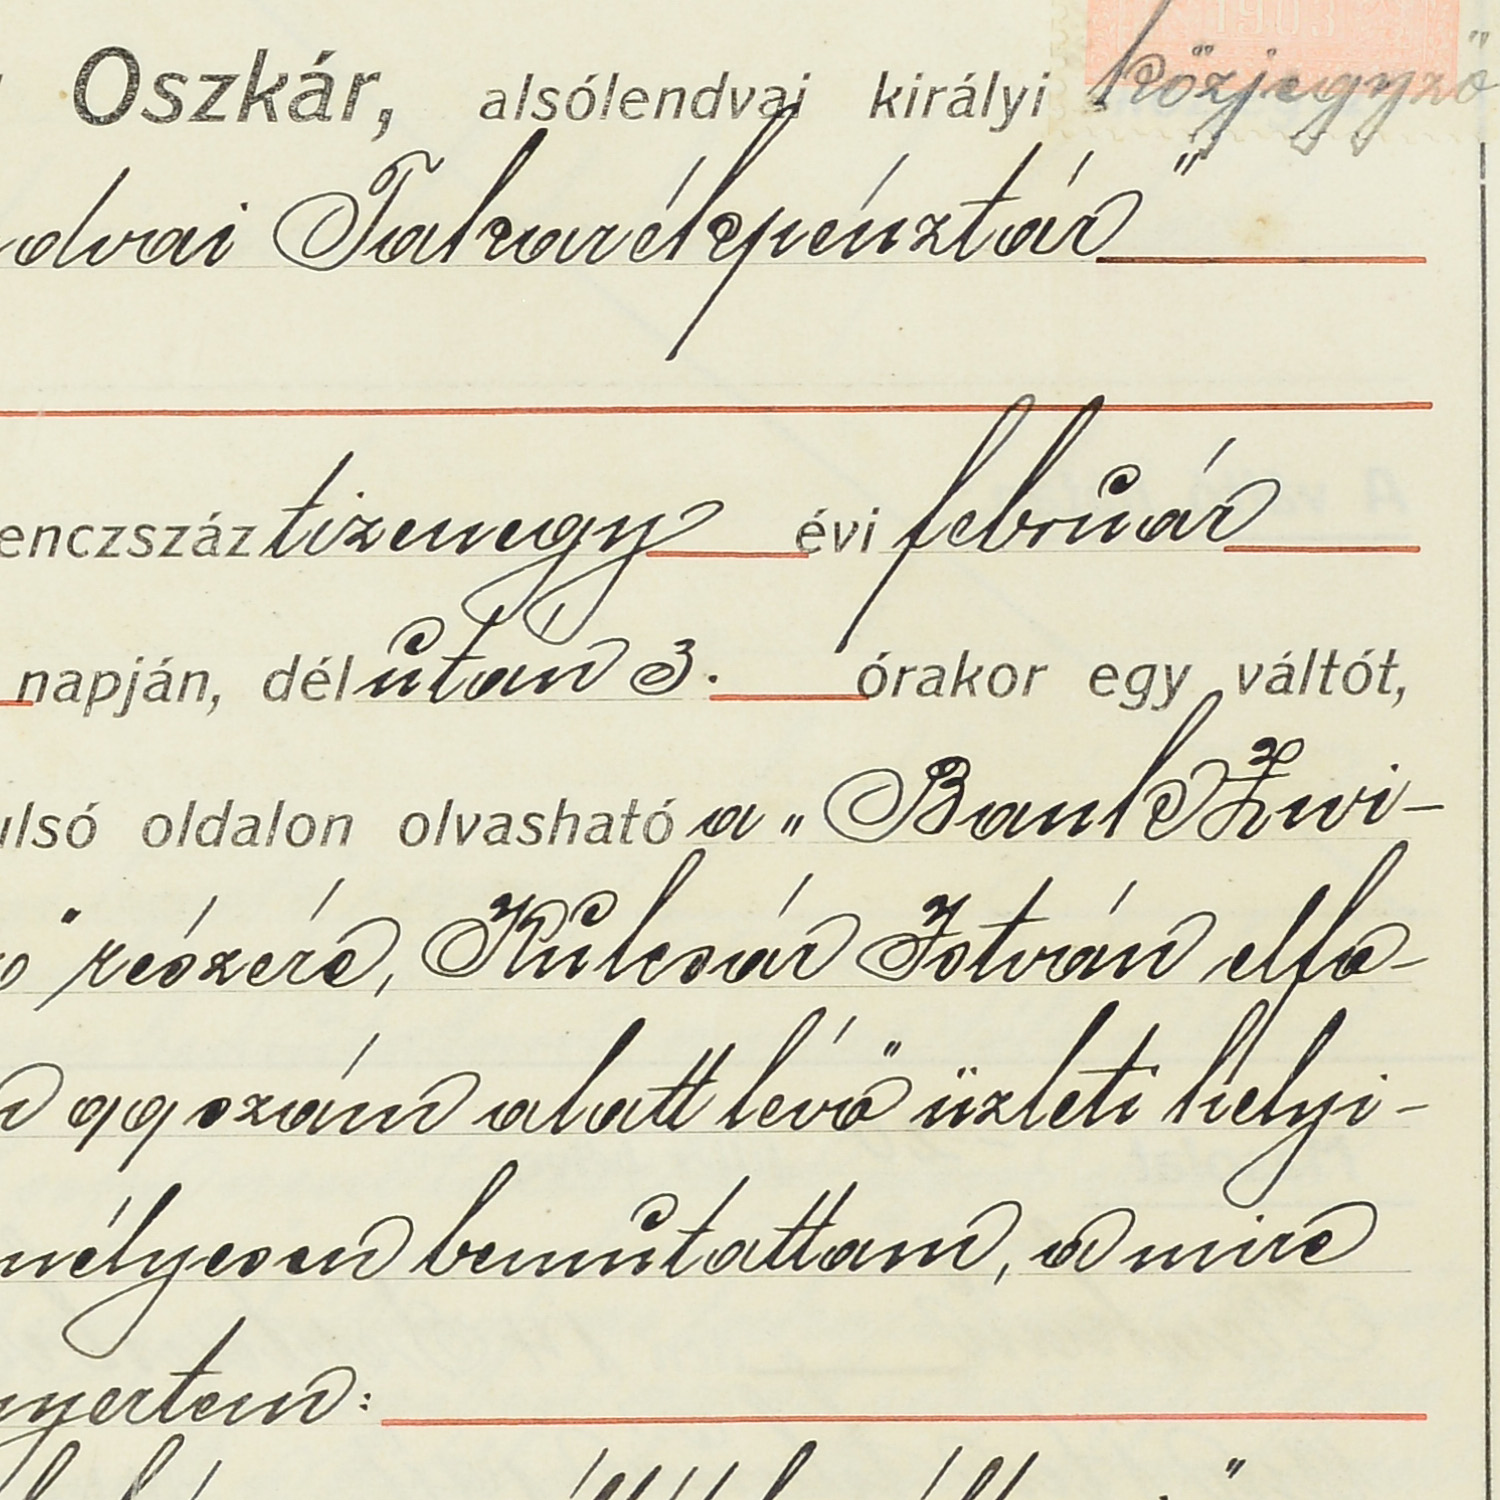 Oszkár, alsólendvai királyi közjegyző
dvai Takarékpénztár"
enczszáz tizenegy évi február
napján, délután 3. órakor egy váltót,
ulsó oldalon olvasható a „Bank Zwi-
" részére, Kulcsár István elfo-
99 szám alatt lévő üzleti helyi-
mélyesen bemutattam, a mire
nyertem: